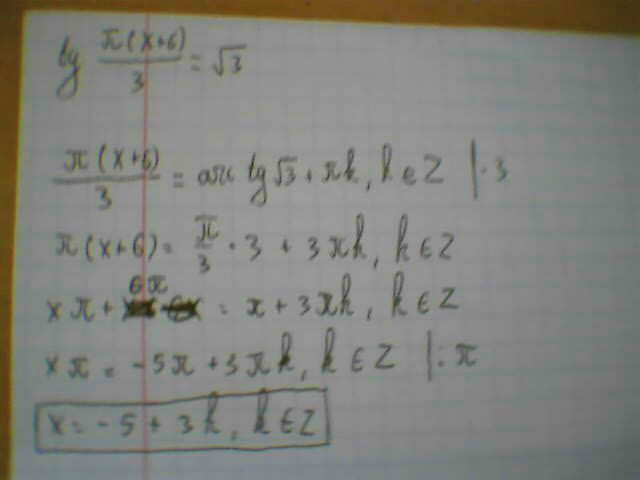 tg π(x+6)/3 = √3
π(x+6)/3 = arc tg √3 + πk, k ∈ Z | · 3
π(x+6) = π/3 · 3 + 3πk, k ∈ Z
xπ + 6π = π + 3πk, k ∈ Z
xπ = -5π + 3πk, k ∈ Z | : π
x = -5 + 3k, k ∈ Z